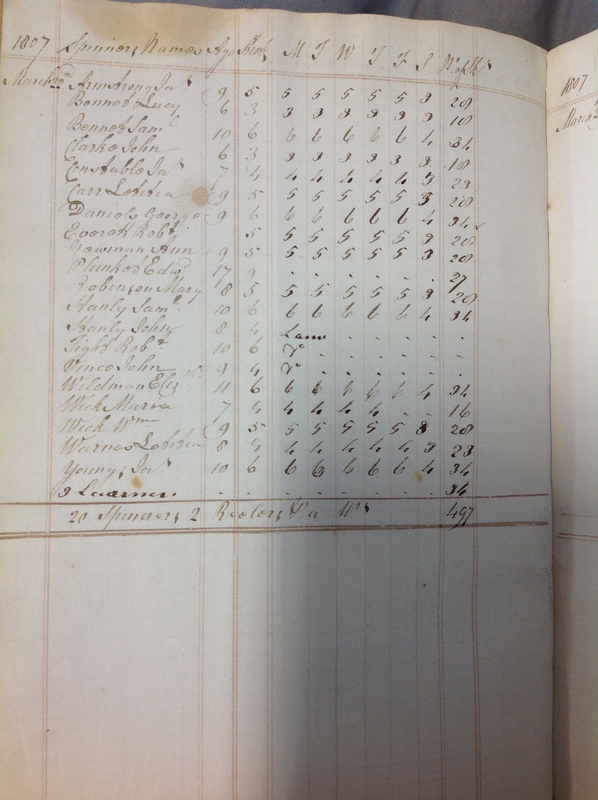 1807 Spinners Names Age Stint M T W T F S Wights
March 22nd Armstrong Jas 9 5 5 5 5 5 5 3 28
Bennet Lucy 6 3 3 3 3 3 3 3 18
Bennet Saml 10 6 6 6 6 6 6 4 34
Clarke John 6 3 3 3 3 3 3 3 18
Constable Jas 7 4 4 4 4 4 4 3 23
Carr Letitia 9 5 5 5 5 5 5 3 28
Daniels George 9 6 6 6 6 6 6 4 34
Everett Robt 5 5 5 5 5 5 3 28
Ann 9 5 5 5 5 5 5 3 28
Plunket Edwd 17 9 . . . . . . 27
Robinson Mary 8 5 5 5 5 5 5 3 28
Hanly Saml 10 6 6 6 6 6 6 4 34
Hanly John 8 4 Lame . . . . .
Tight Robt 10 6 Do . . . . .
Vince John 9 4 Do . . . . .
Wildman Eliz 11 6 6 6 6 6 6 4 34
Wick Maria 7 4 4 4 4 4 . . 16
Wick Wm 9 5 5 5 5 5 5 3 28
Warnes Letitia 8 4 4 4 4 4 4 3 23
Youngs Jas 10 6 6 6 6 6 6 4 34
3 Learners . . . . . . 34
20 Spinners 2 Reelers 497
1807
March 2